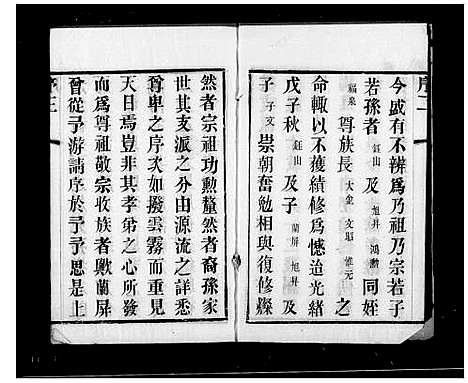 序二
今盛有不辨為乃祖乃宗若子
若孫者鈺山及旭昇鴻勳同姪
福泉尊族長大金文魁維元之
命輒以不獲續修為憾迨光緒
戊子秋鈺山及子蘭屏旭昇及
子子文崇朝奮勉相與復修燦
然者宗祖功勲釐然者裔孫家
世其支派之分由源流之詳悉
尊卑之序次如撥雲霧而重見
天日焉豈非其孝弟之心所發
而為尊祖敬宗收族者歟蘭屏
曾從予游請序於予予思是上
序三